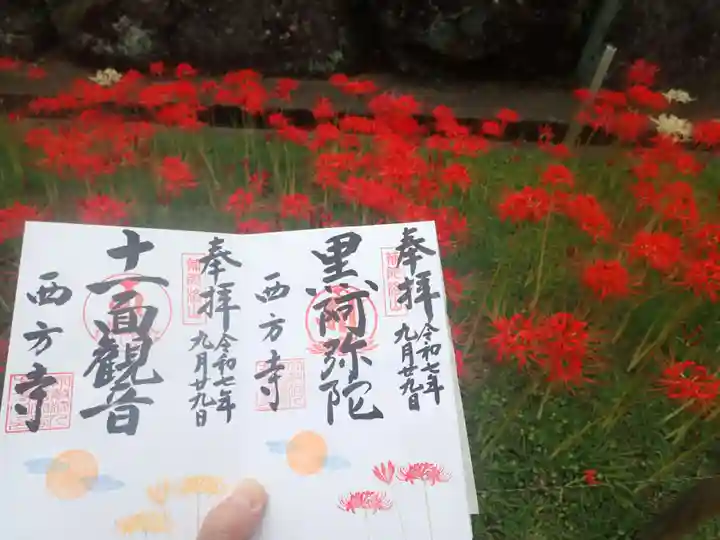 奉拝
令和七年
九月廿九日
黒阿弥陀
西方寺
奉拝
令和七年
九月廿九日
十一面観音
西方寺